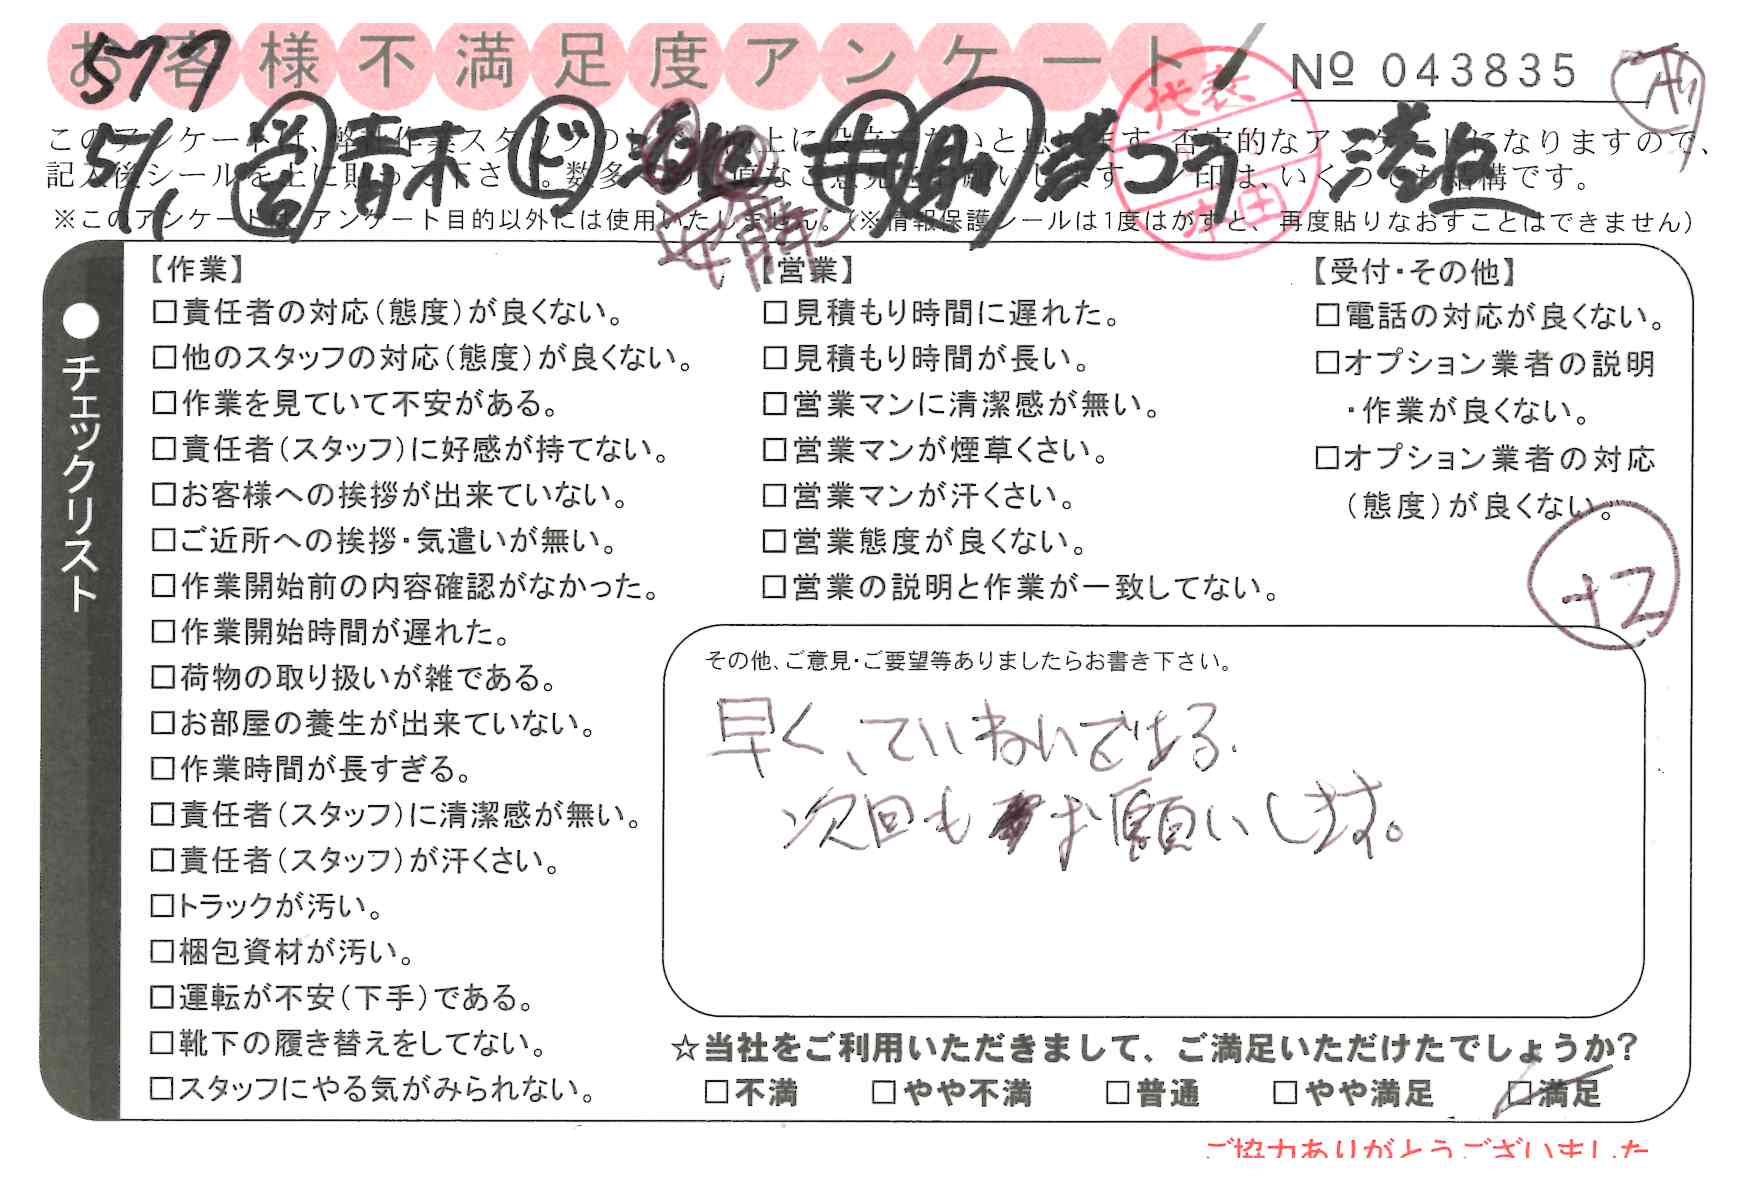 お客様不満足度アンケート
№ 043835
577
5/1 営 青木 ド
代表
本田
このアンケートは、弊社作業スタッフの
上に役立てたいと思います。否定的なアンケートになりますので、
記入後シールを上に貼って下さい。数多くの貴重なご意見をお願いします。レ印は、いくつでも結構です。
※このアンケートは、アンケート目的以外には使用いたしません。(※情報保護シールは1度はがすと、再度貼りなおすことはできません)
●チェックリスト
【作業】
□責任者の対応(態度)が良くない。
□他のスタッフの対応(態度)が良くない。
□作業を見ていて不安がある。
□責任者(スタッフ)に好感が持てない。
□お客様への挨拶が出来ていない。
□ご近所への挨拶・気遣いが無い。
□作業開始前の内容確認がなかった。
□作業開始時間が遅れた。
□荷物の取り扱いが雑である。
□お部屋の養生が出来ていない。
□作業時間が長すぎる。
□責任者(スタッフ)に清潔感が無い。
□責任者(スタッフ)が汗くさい。
□トラックが汚い。
□梱包資材が汚い。
□運転が不安(下手)である。
□靴下の履き替えをしてない。
□スタッフにやる気がみられない。
【営業】
□見積もり時間に遅れた。
□見積もり時間が長い。
□営業マンに清潔感が無い。
□営業マンが煙草くさい。
□営業マンが汗くさい。
□営業態度が良くない。
□営業の説明と作業が一致してない。
【受付・その他】
□電話の対応が良くない。
□オプション業者の説明
・作業が良くない。
□オプション業者の対応
(態度)が良くない。
+2
その他、ご意見・ご要望等ありましたらお書き下さい。
早く、ていねいである。
次回もお願いします。
☆当社をご利用いただきまして、ご満足いただけたでしょうか?
□不満 □やや不満 □普通 □やや満足 □満足
ご協力ありがとうございました